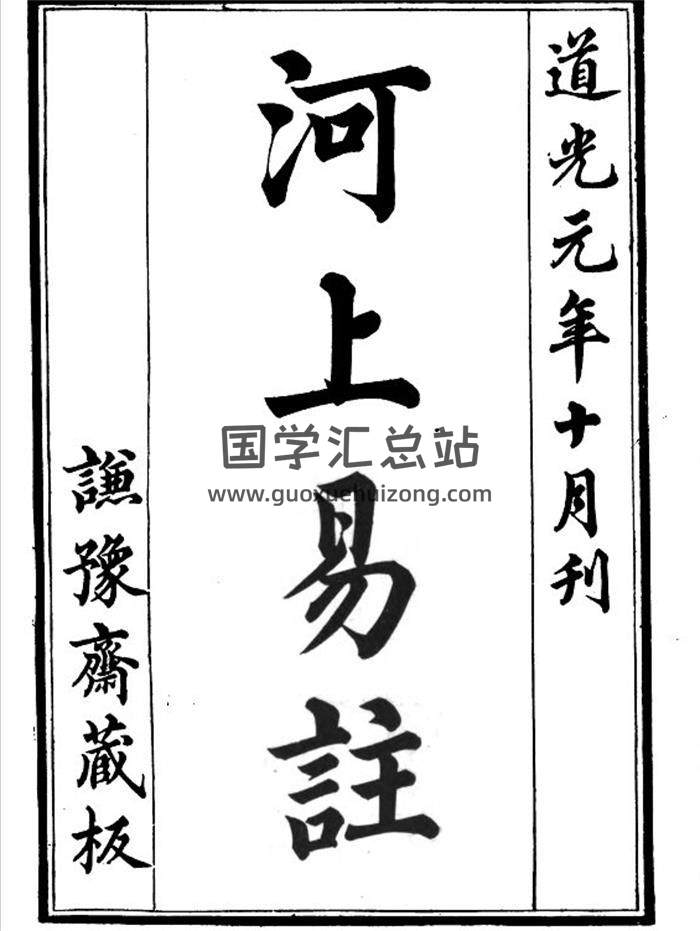 道光元年十月刊
河上易註
謙豫齋藏板
国学汇总站
www.guoxuehuizong.com